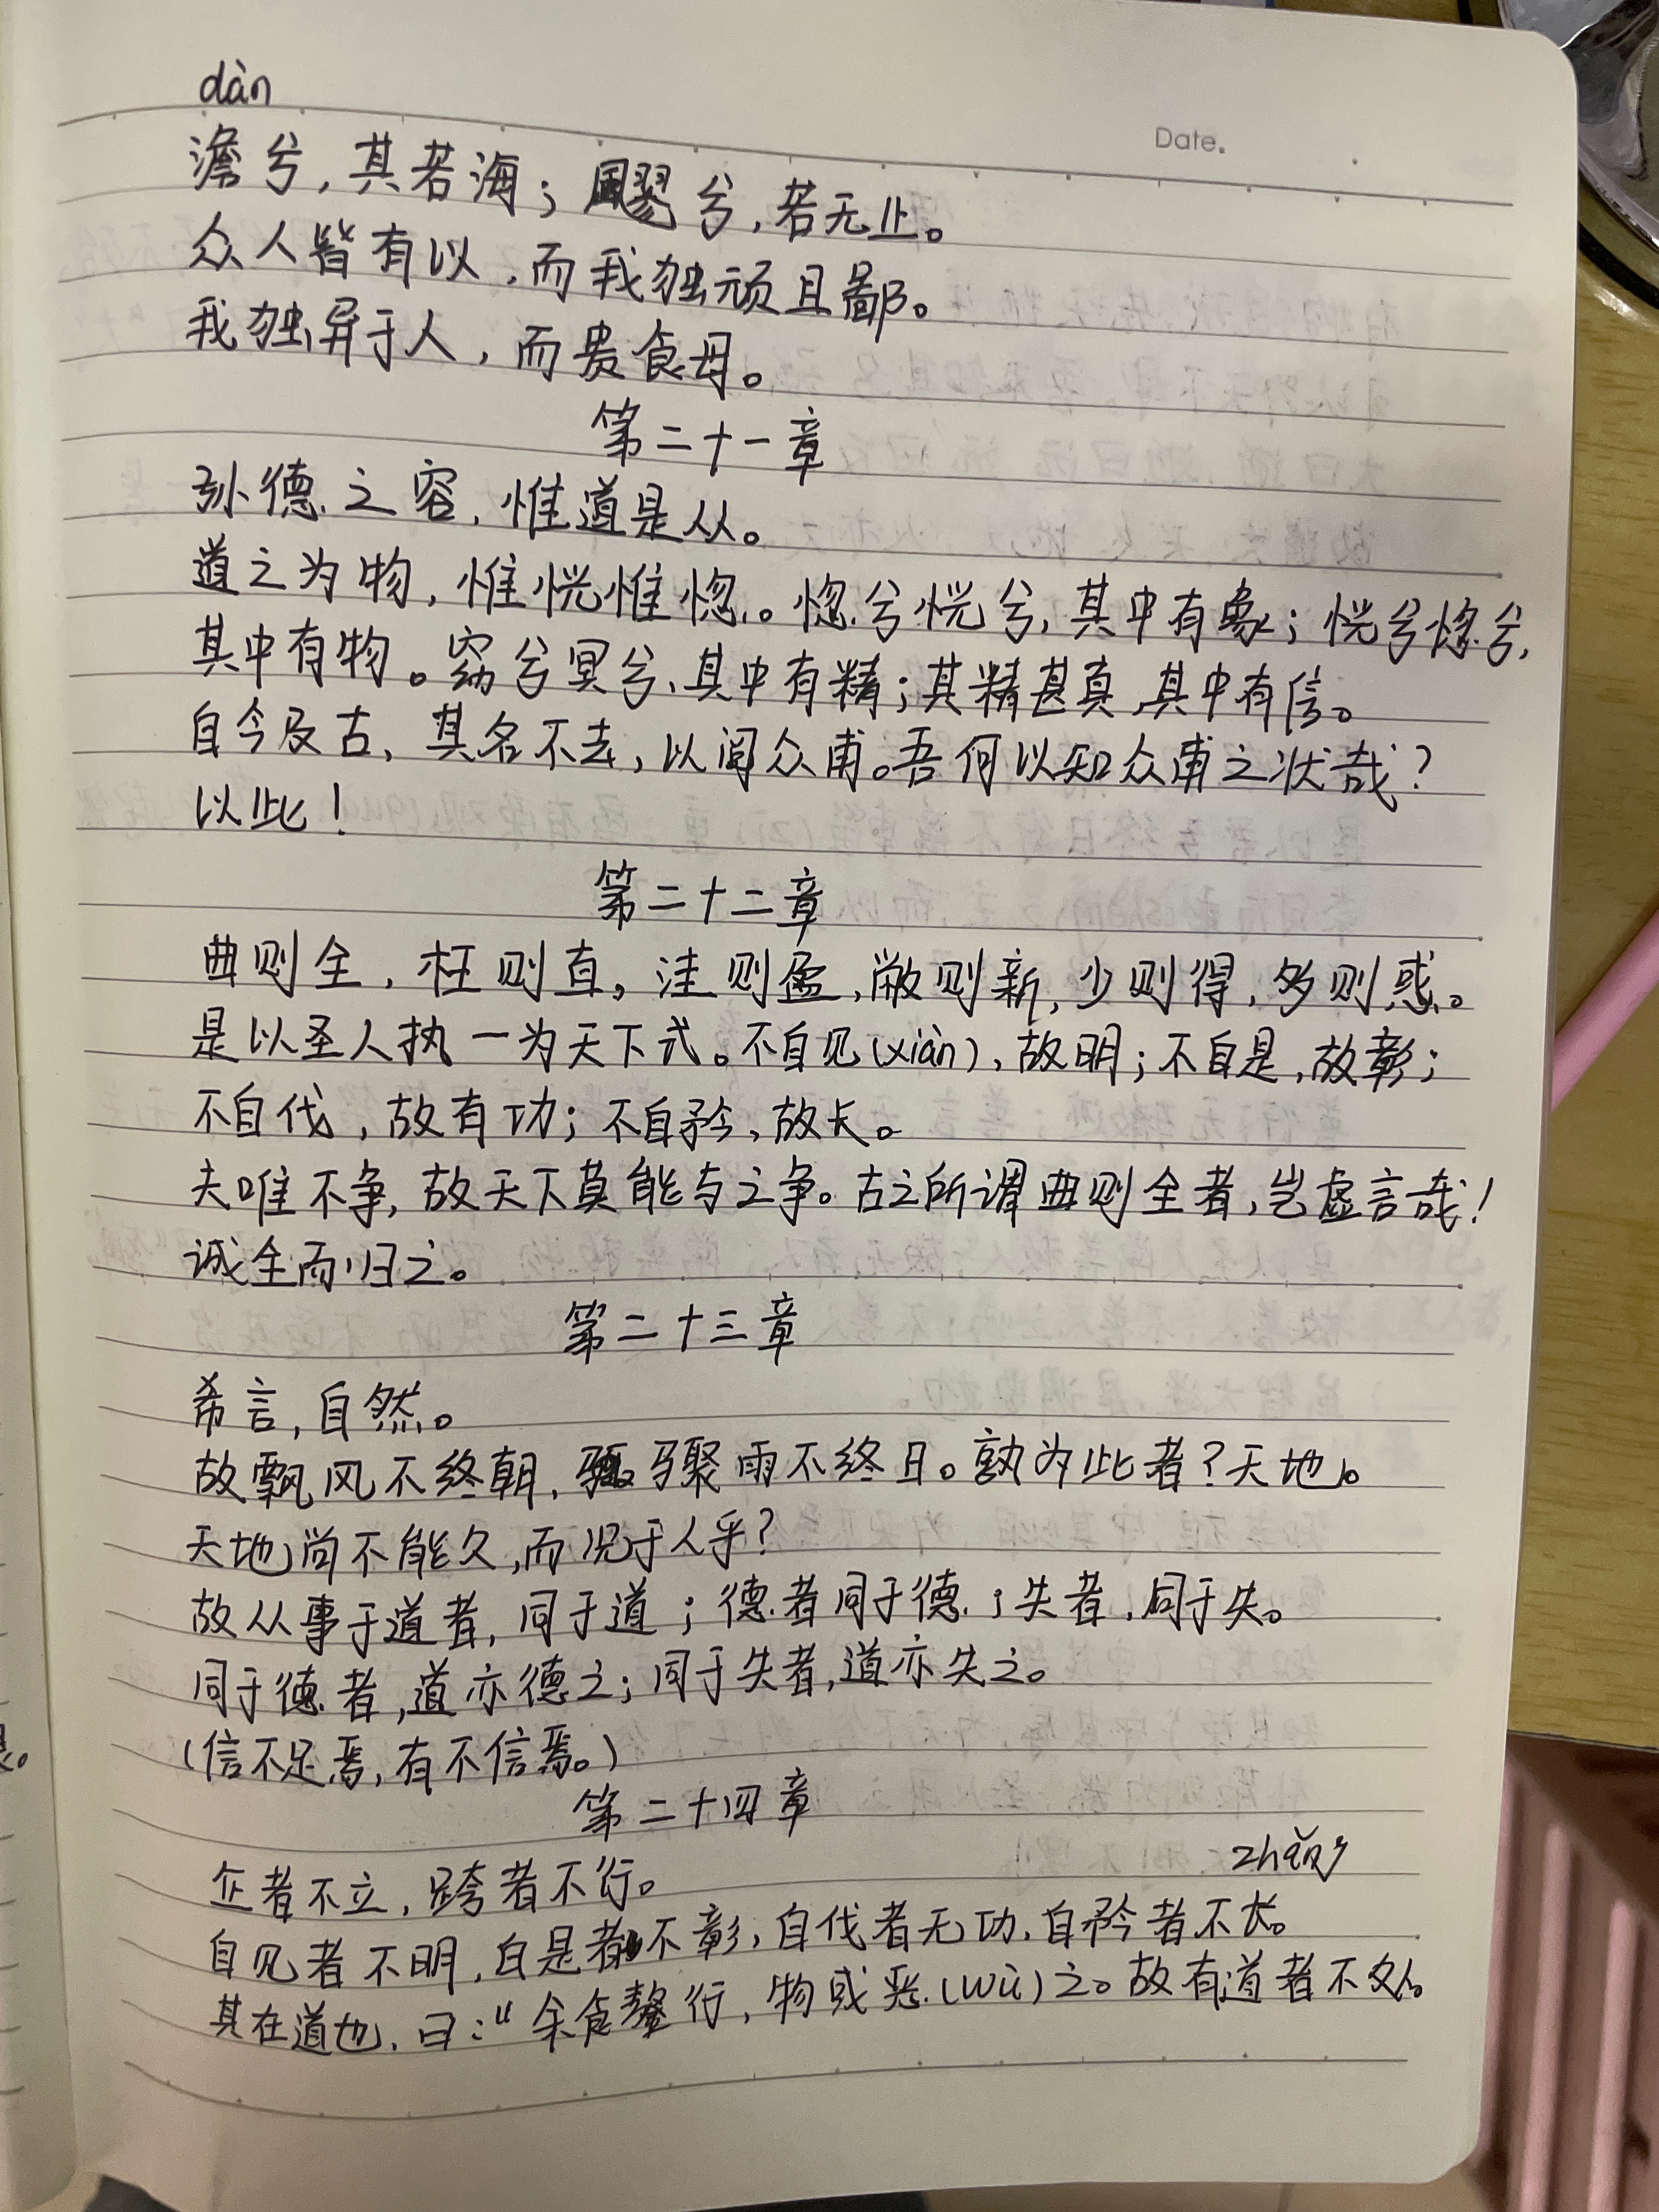 dàn
Date.
澹兮，其若海；飂兮，若无止。
众人皆有以，而我独顽且鄙。
我独异于人，而贵食母。
第二十一章
孔德之容，惟道是从。
道之为物，惟恍惟惚。惚兮恍兮，其中有象；恍兮惚兮，
其中有物。窈兮冥兮，其中有精；其精甚真，其中有信。
自今及古，其名不去，以阅众甫。吾何以知众甫之状哉？
以此！
第二十二章
曲则全，枉则直，洼则盈，敝则新，少则得，多则惑。
是以圣人执一为天下式。不自见(xiàn)，故明；不自是，故彰；
不自伐，故有功；不自矜，故长。
夫唯不争，故天下莫能与之争。古之所谓曲则全者，岂虚言哉！
诚全而归之。
第二十三章
希言，自然。
故飘风不终朝，骤雨不终日。孰为此者？天地。
天地尚不能久，而况于人乎？
故从事于道者，同于道；德者同于德；失者，同于失。
同于德者，道亦德之；同于失者，道亦失之。
(信不足焉，有不信焉。)
第二十四章
zhǎng
企者不立，跨者不行。
自见者不明，自是者不彰，自伐者无功，自矜者不长。
其在道也，曰：“余食行，物或恶(wù)之。故有道者不处。